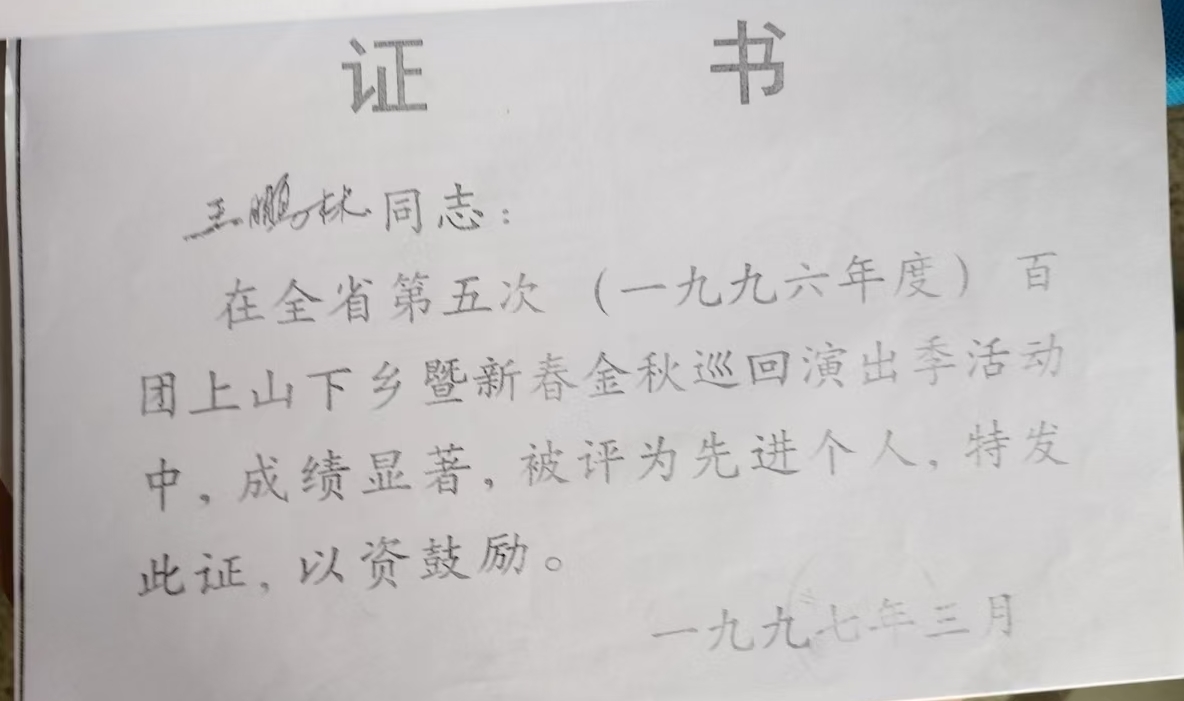 证书
王鹏林同志：
在全省第五次（一九九六年度）百
团上山下乡暨新春金秋巡回演出季活动
中，成绩显著，被评为先进个人，特发
此证，以资鼓励。
一九九七年三月